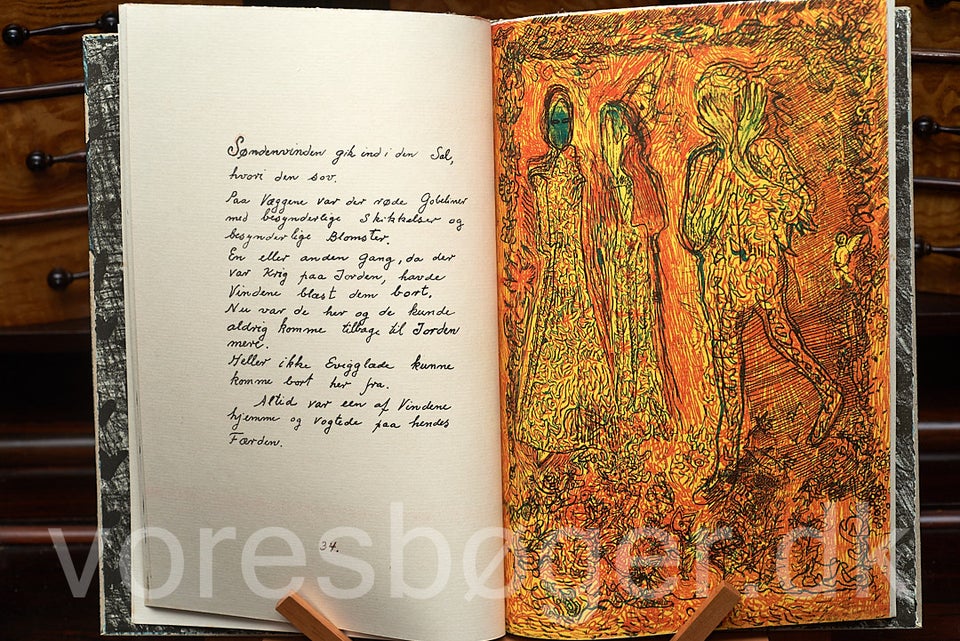 Søndenvinden gik ind i den Sal,
hvori den sov.
Paa Væggene var der røde Gobeliner
med besynderlige Skikkelser og
besynderlige Blomster.
En eller anden Gang, da der
var Krig paa Jorden, havde
Vindene blæst dem bort.
Nu var de her og de kunde
aldrig komme tilbage til Jorden
mere.
Heller ikke Evigglæde kunne
komme bort her fra.
Altid var een af Vindene
hjemme og vogtede paa hendes
Færden.
34.
voresbøger.dk